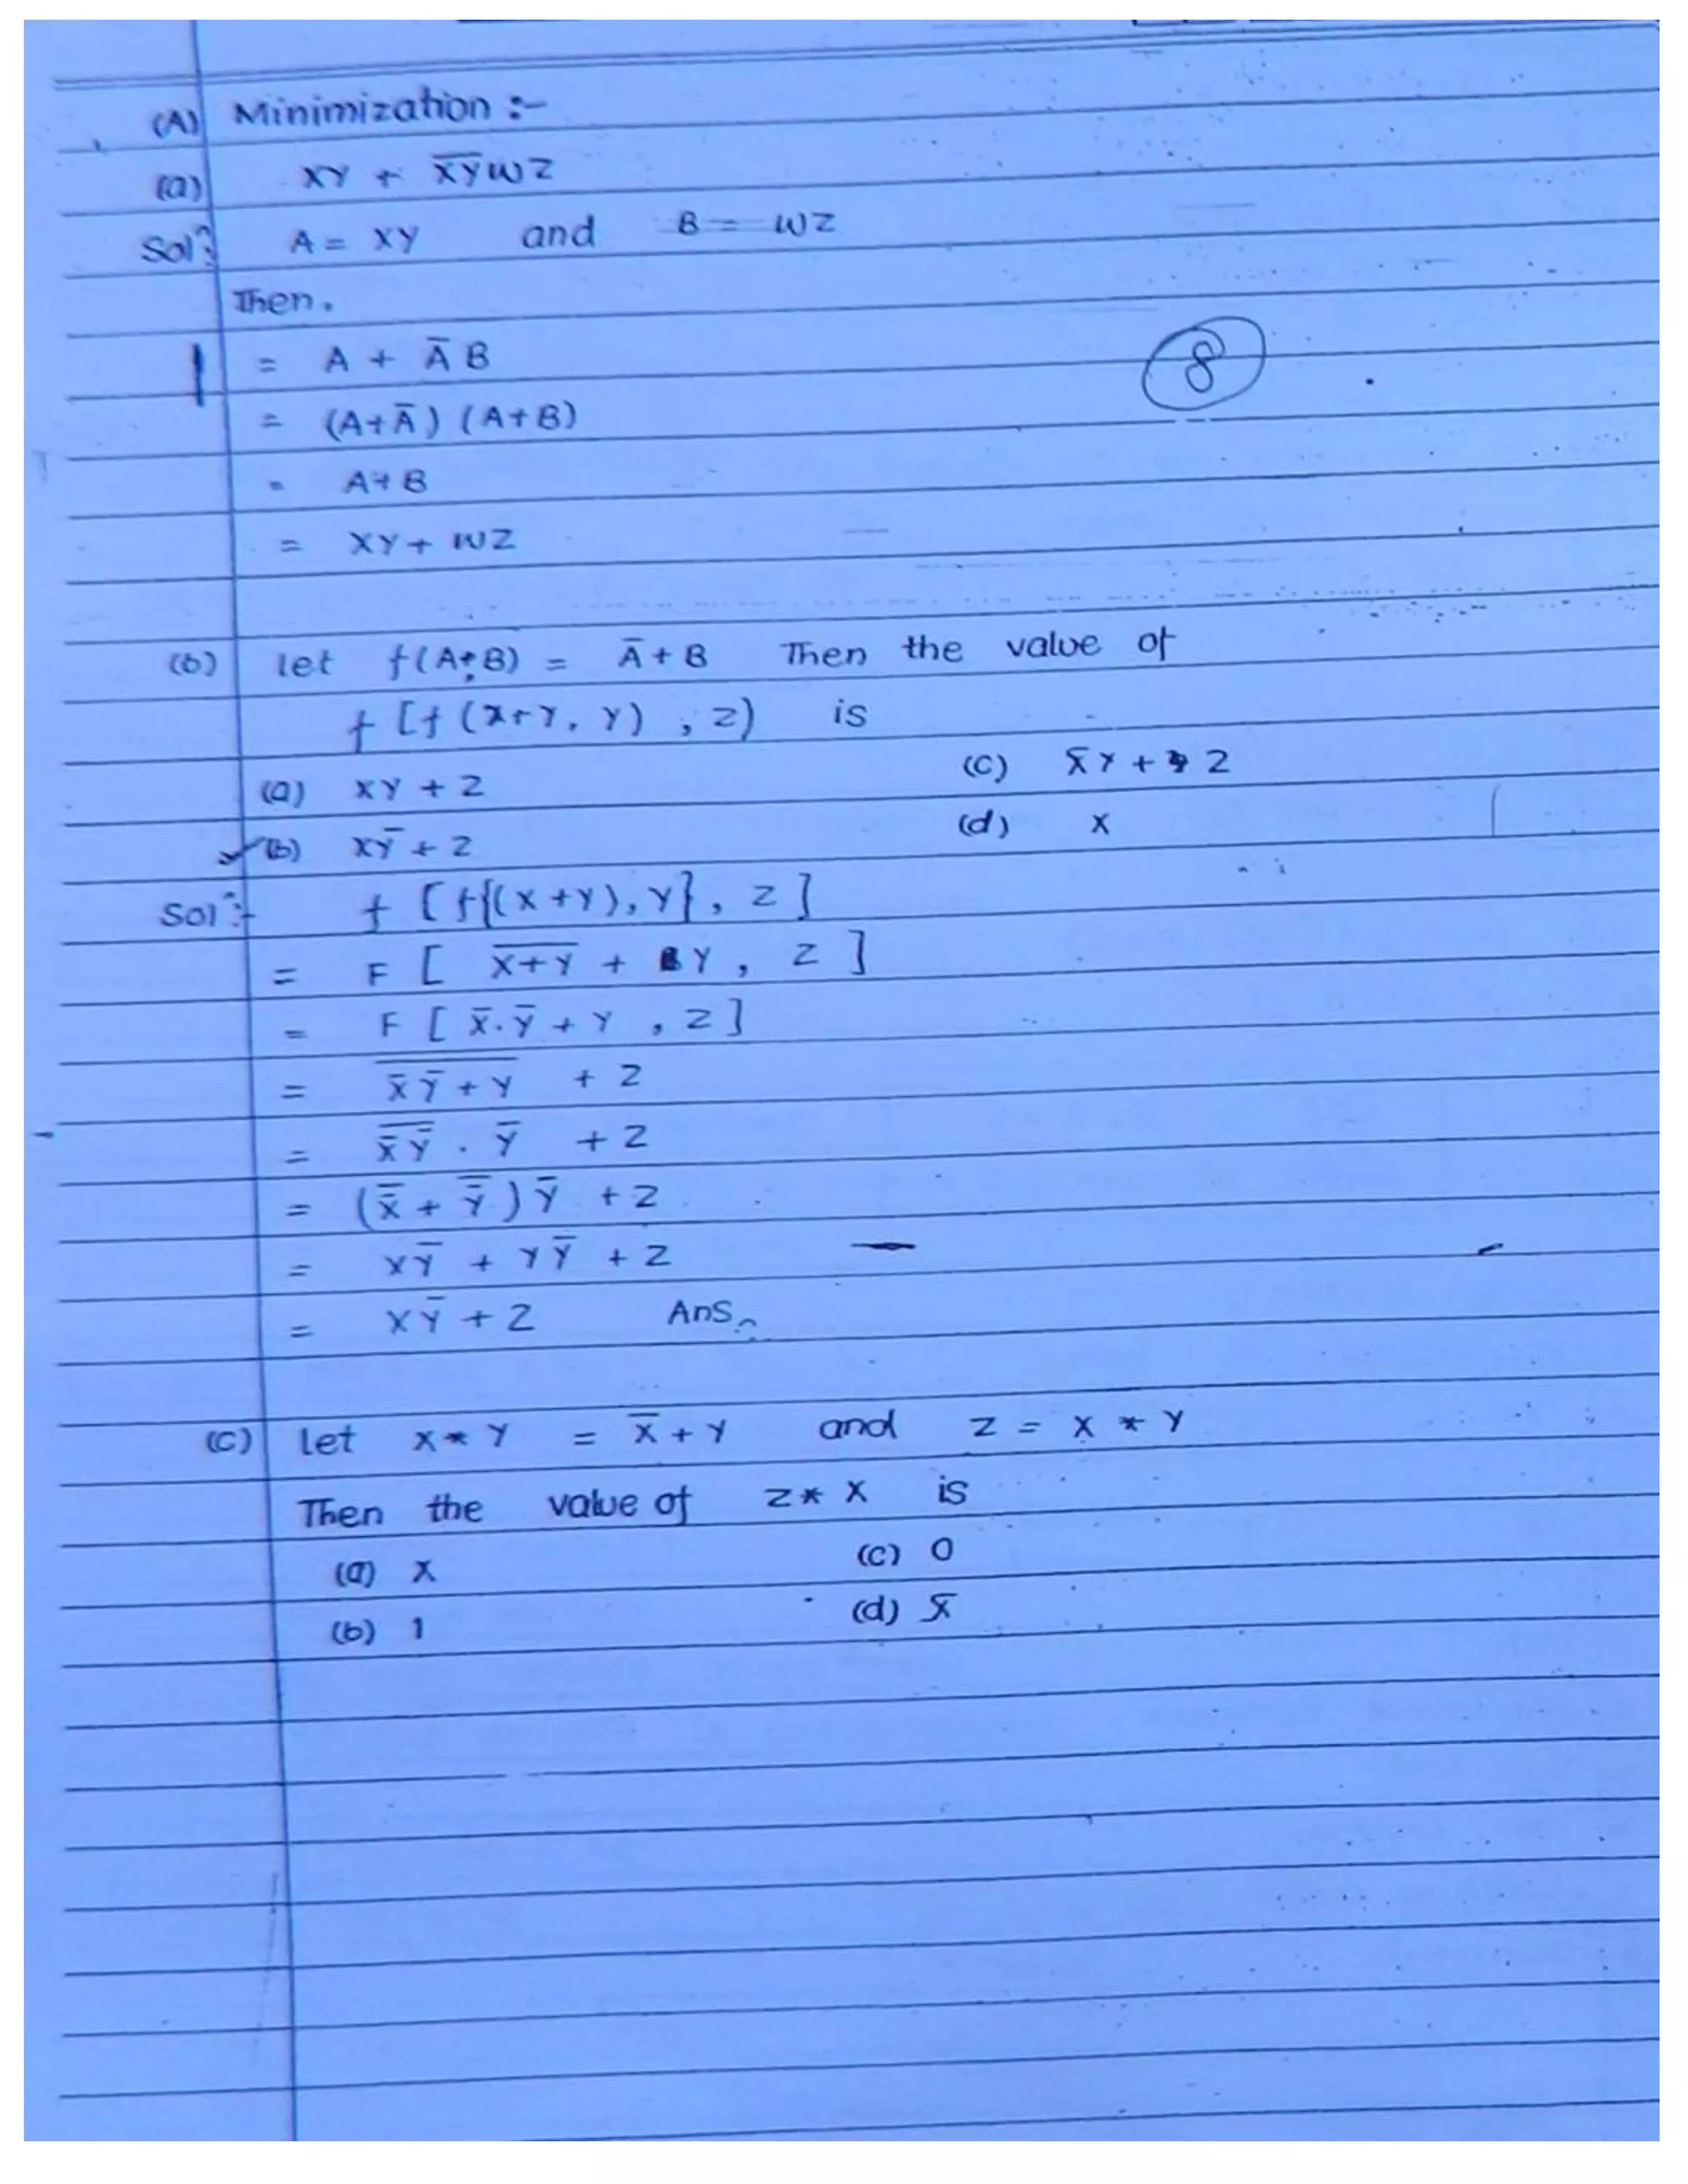 (A) Minimization :-
(a) XY + X̅Y̅WZ
Solⁿ: A = XY and B = WZ
Then.
= A + A̅ B
8
= (A+A̅) (A+B)
= A+B
= XY + WZ
(b) let f(A,B) = A̅ + B Then the value of
f [f (X+Y, Y) , Z) is
(a) XY + Z (c) X̅Y + Z
(b) XY̅ + Z (d) X
Solⁿ:- f [f{(X+Y), Y}, Z ]
= F [ X̅+̅Y̅ + Y, Z ]
= F [ X̅.Y̅ + Y , Z ]
= \overline{X̅Y̅ + Y} + Z
= \overline{X̅Y̅} . Y̅ + Z
= (X̿ + Y̿) Y̅ + Z
= XY̅ + YY̅ + Z
= XY̅ + Z Ans.
(c) Let X * Y = X̅ + Y and Z = X * Y
Then the value of Z * X is
(a) X (c) 0
(b) 1 (d) X̅